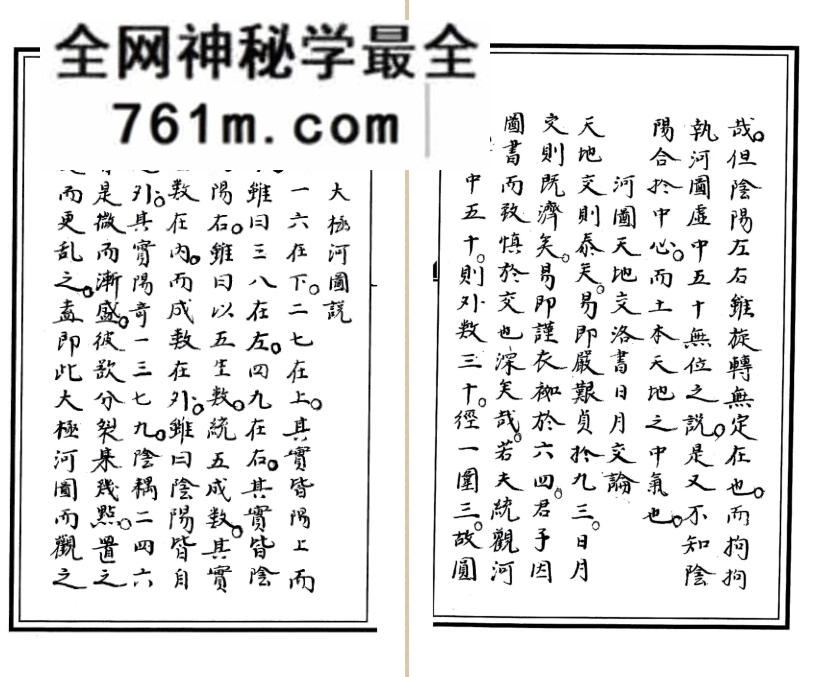 全网神秘学最全
761m.com
哉。但陰陽左右雖旋轉無定在也。而拘拘
執河圖虛中五十無位之說。是又不知陰
陽合於中心。而土本天地之中氣也。
河圖天地交洛書日月交論
天地交則泰矣。易即嚴艱貞於九三。日月
交則既濟矣。易即謹衣袽於六四。君子因
圖書而致慎於交也深矣哉。若夫統觀河
中五十。則外數三十。徑一圍三。故圓
大極河圖說
一六在下。二七在上。其實皆陽上而
雖曰三八在左。四九在右。其實皆陰
陽右。雖曰以五生數。統五成数。其實
数在內。而成数在外。雖曰陰陽皆自
外。其實陽奇一三七九。陰耦二四六
是微而漸盛。彼欲分裂某幾點。置之
而更乱之。盍即此大極河圖而觀之